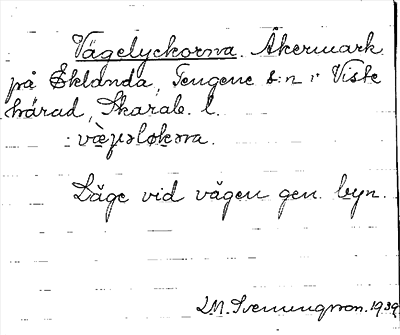 Vägelyckorna. Åkermark
på Eklanda, Tengene s:n i Viste
härad, Skarab. l.
Läge vid vägen gen. byn.
I.M. Svenungsson. 1939